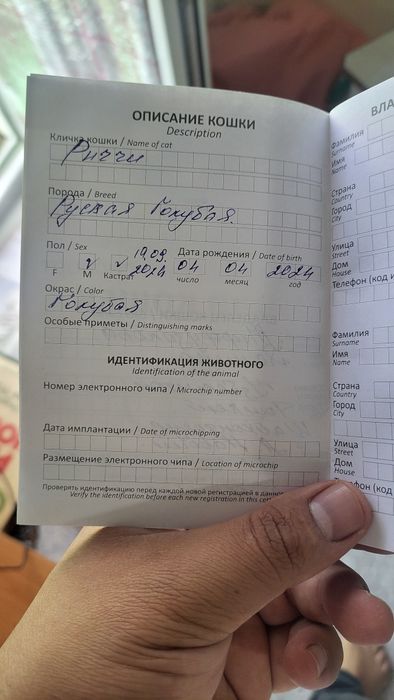 ОПИСАНИЕ КОШКИ
Description
Кличка кошки / Name of cat
Риччи
Порода / Breed
Руская Голубая.
Пол / Sex
F
M
Кастрат
19.09.
2024
Дата рождения / Date of birth
04 04 2024
число месяц год
Окрас / Color
Голубая
Особые приметы / Distinguishing marks
ИДЕНТИФИКАЦИЯ ЖИВОТНОГО
Identification of the animal
Номер электронного чипа / Microchip number
Дата имплантации / Date of microchipping
Размещение электронного чипа / Location of microchip
Проверять идентификацию перед каждой новой регистрацией в данном
Verify the identification before each new registration in this
ВЛА
Фамилия
Surname
Имя
Name
Страна
Country
Город
City
Улица
Street
Дом
House
Телефон (код и
Фамилия
Surname
Имя
Name
Страна
Country
Город
City
Улица
Street
Дом
House
(код